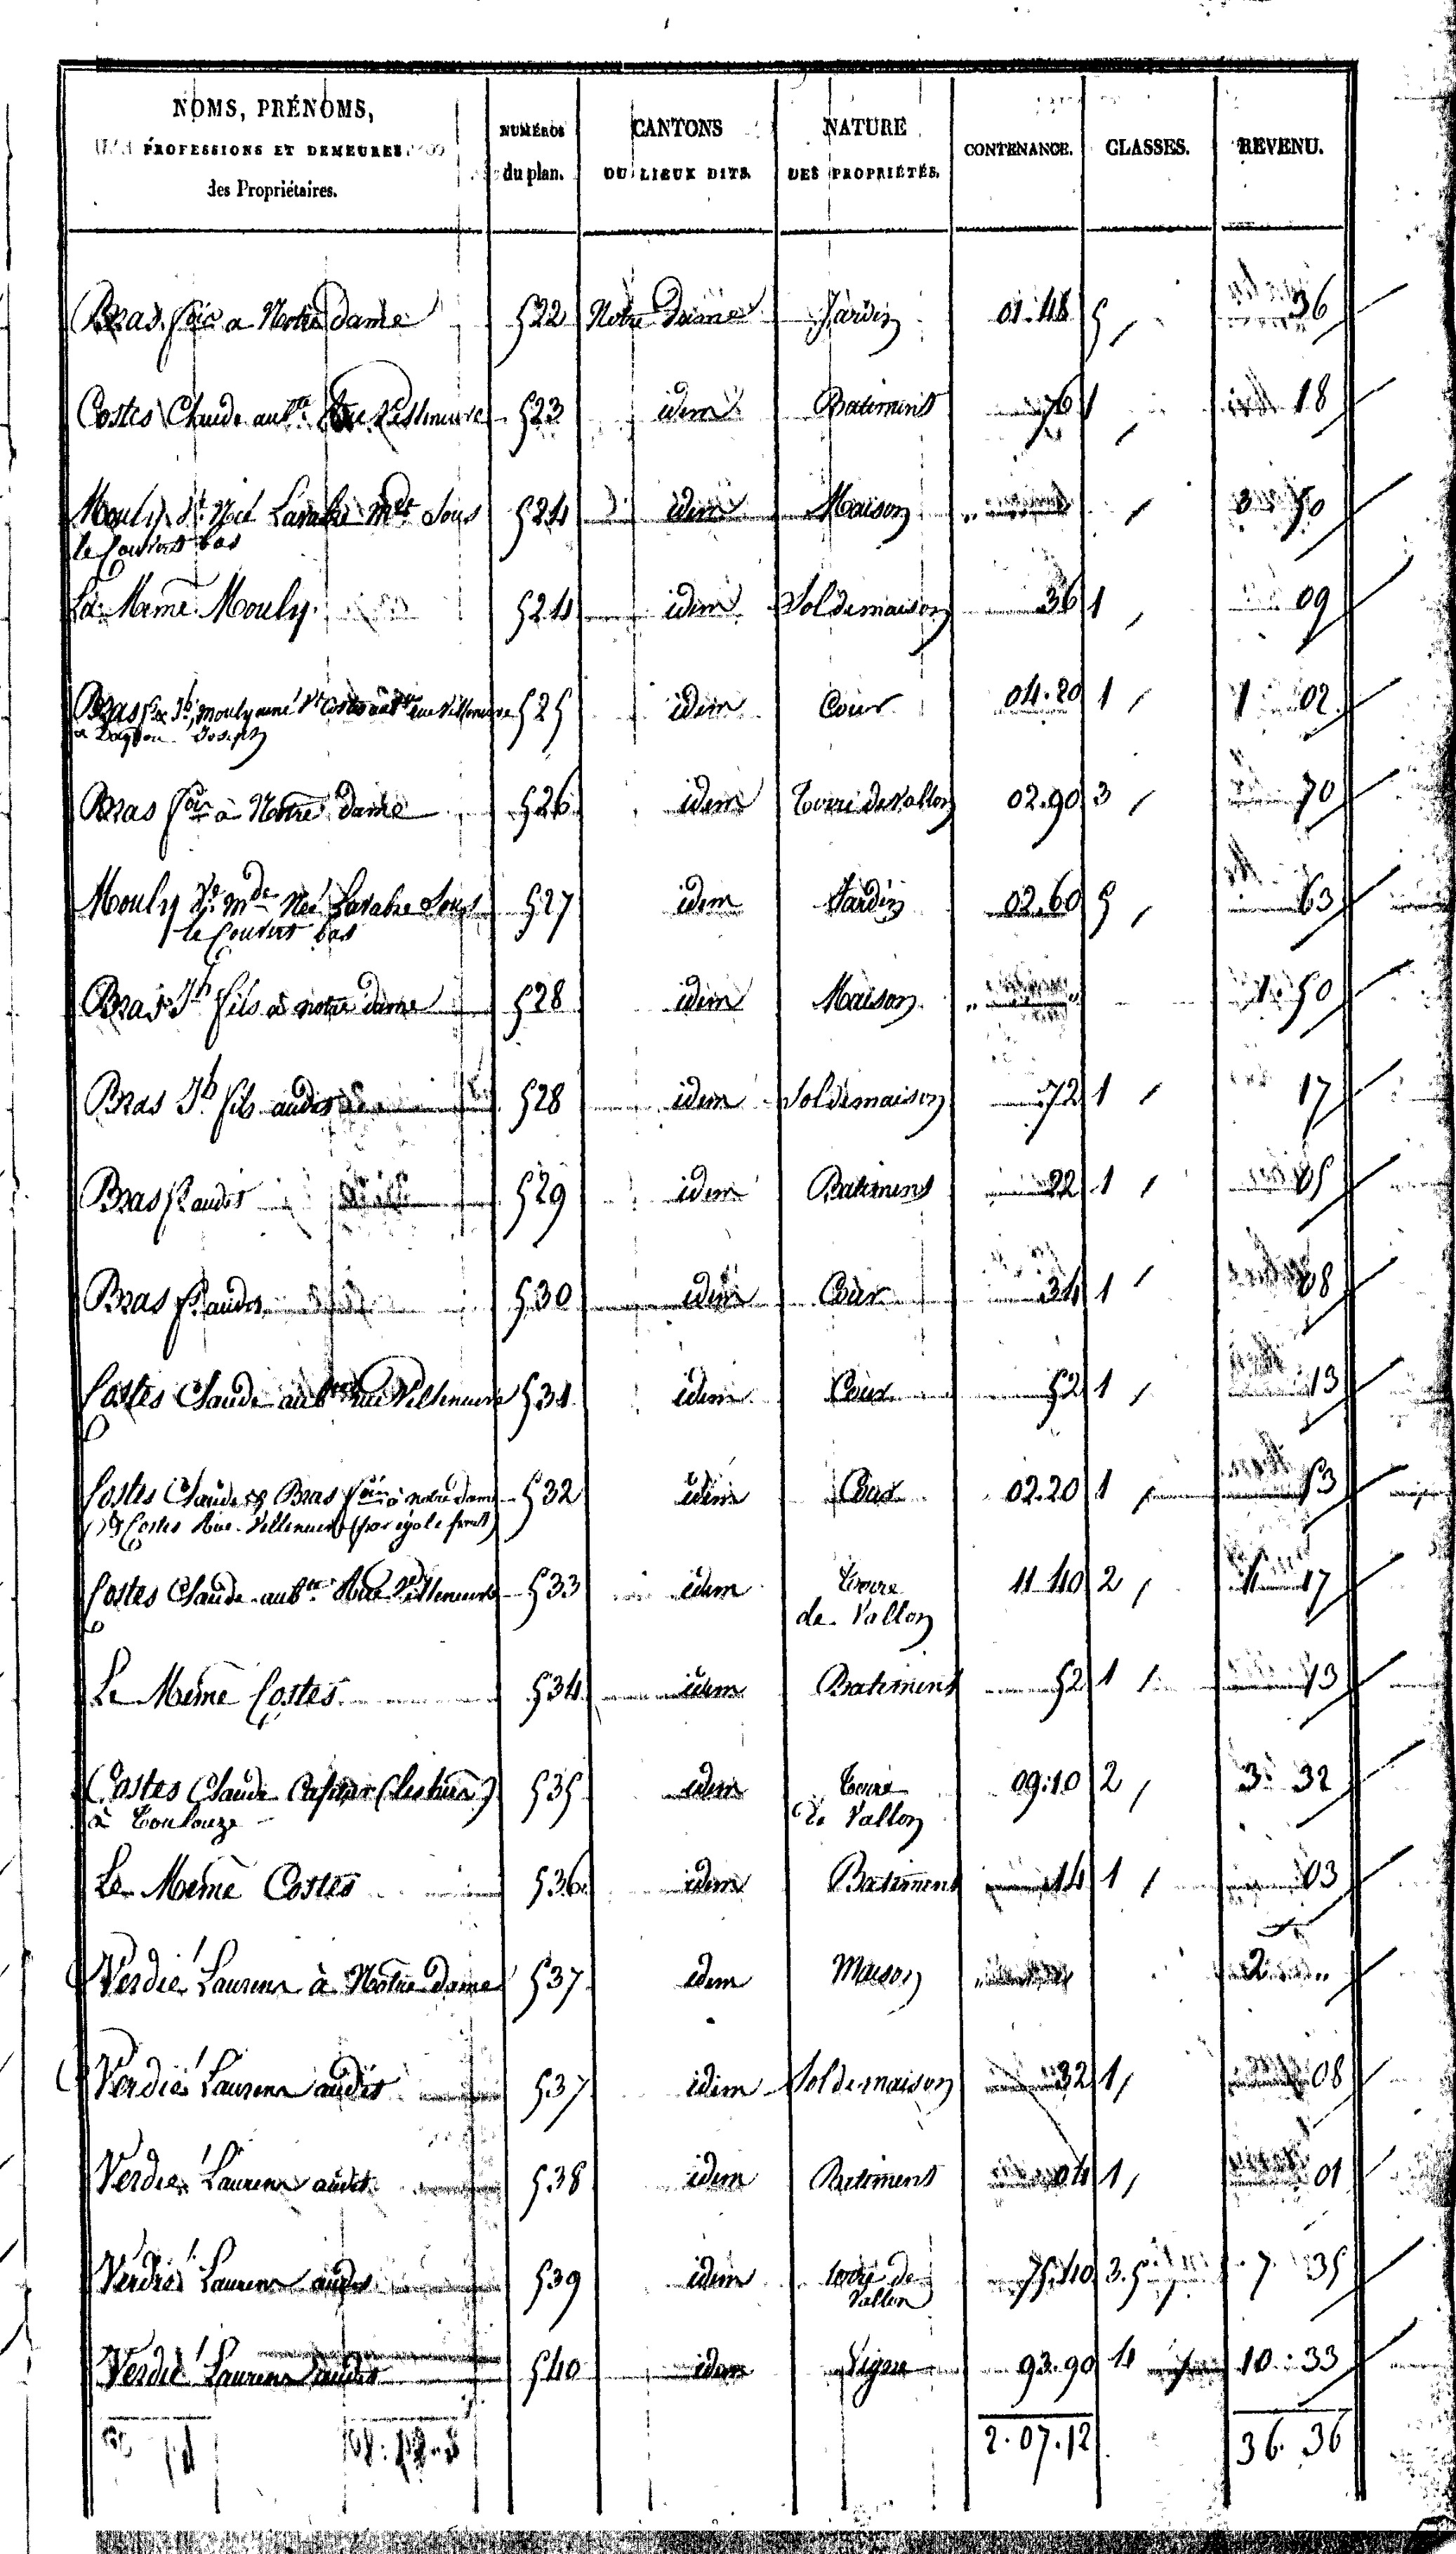 NOMS, PRÉNOMS, PROFESSIONS ET DEMEURES des Propriétaires. | NUMÉROS du plan. | CANTONS OU LIEUX DITS. | NATURE DES PROPRIÉTÉS. | CONTENANCE. | CLASSES. | REVENU.
Bras a Notre dame 522 Notre Dame Jardin 01.48 5 36
Costes Claude aubte Rue Villeneuve 523 idem Batiment 76 1 18
Mouly Née Lavabre Mde Sous 524 idem Maison 50
le Couvert bas
La Meme Mouly 524 Sol de maison idem 36 1 09
Bras Jh, Mouly Costes aubte rue Villeneuve 525 idem Cour 04.20 1 1 02
a Joseph
Bras à Notre dame 526 idem terre de Vallon 02.90 3 70
Mouly Ve Mde Née Lavabre Sous 527 idem Jardin 02.60 5 63
le Couvert bas
Bras Jh fils à notre dame 528 idem Maison 50
Bras Jh fils audit 528 idem Sol de maison 72 1 17
Bras audit 529 idem Batiment 22 1 05
Bras audit 530 idem Cour 34 1 08
Costes Claude aubte rue Villeneuve 531 idem Cour 52 1 13
Costes Claude & Bras à notre dame 532 idem Cour 02.20 1 53
Costes Rue Villeneuve (par égale
Costes Claude aubte Rue Villeneuve 533 idem terre 11.40 2 4 17
de Vallon
Le Même Costes 534 idem Batiment 52 1 13
Costes Claude 535 idem terre 09.10 2 3. 32
à Toulouze de Vallon
Le Même Costes 536 idem Batiment 14 1 03
Verdié Laurens à Notre dame 537 idem Maison 2 „
Verdié Laurens audit 537 idem Sol de maison 32 1 08
Verdié Laurens audit 538 idem Batiment 04 1 01
Verdié Laurens audit 539 idem terre de 75.40 3.5 7. 35
Vallon
Verdié Laurens audit 540 idem Vigne 93.90 4 10. 33
2.07.12 36. 36